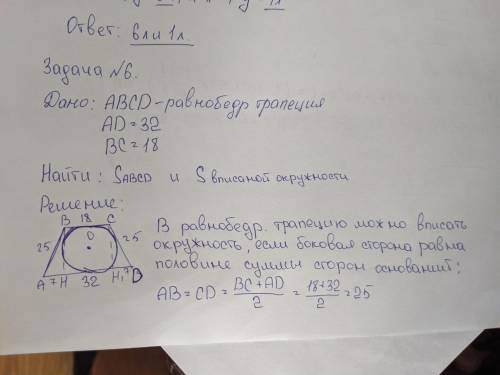 Ответ: 6л и 1л.
Задача №6.
Дано: ABCD - равнобедр трапеция
AD = 32
BC = 18
Найти: SABCD и S вписаной окружности
Решение:
B 18 C
25 O 25
A 7 H 32 H₁ 7 D
В равнобедр. трапецию можно вписать
окружность, если боковая сторона равна
половине суммы сторон оснований;
AB = CD = BC + AD / 2 = 18+32 / 2 = 25